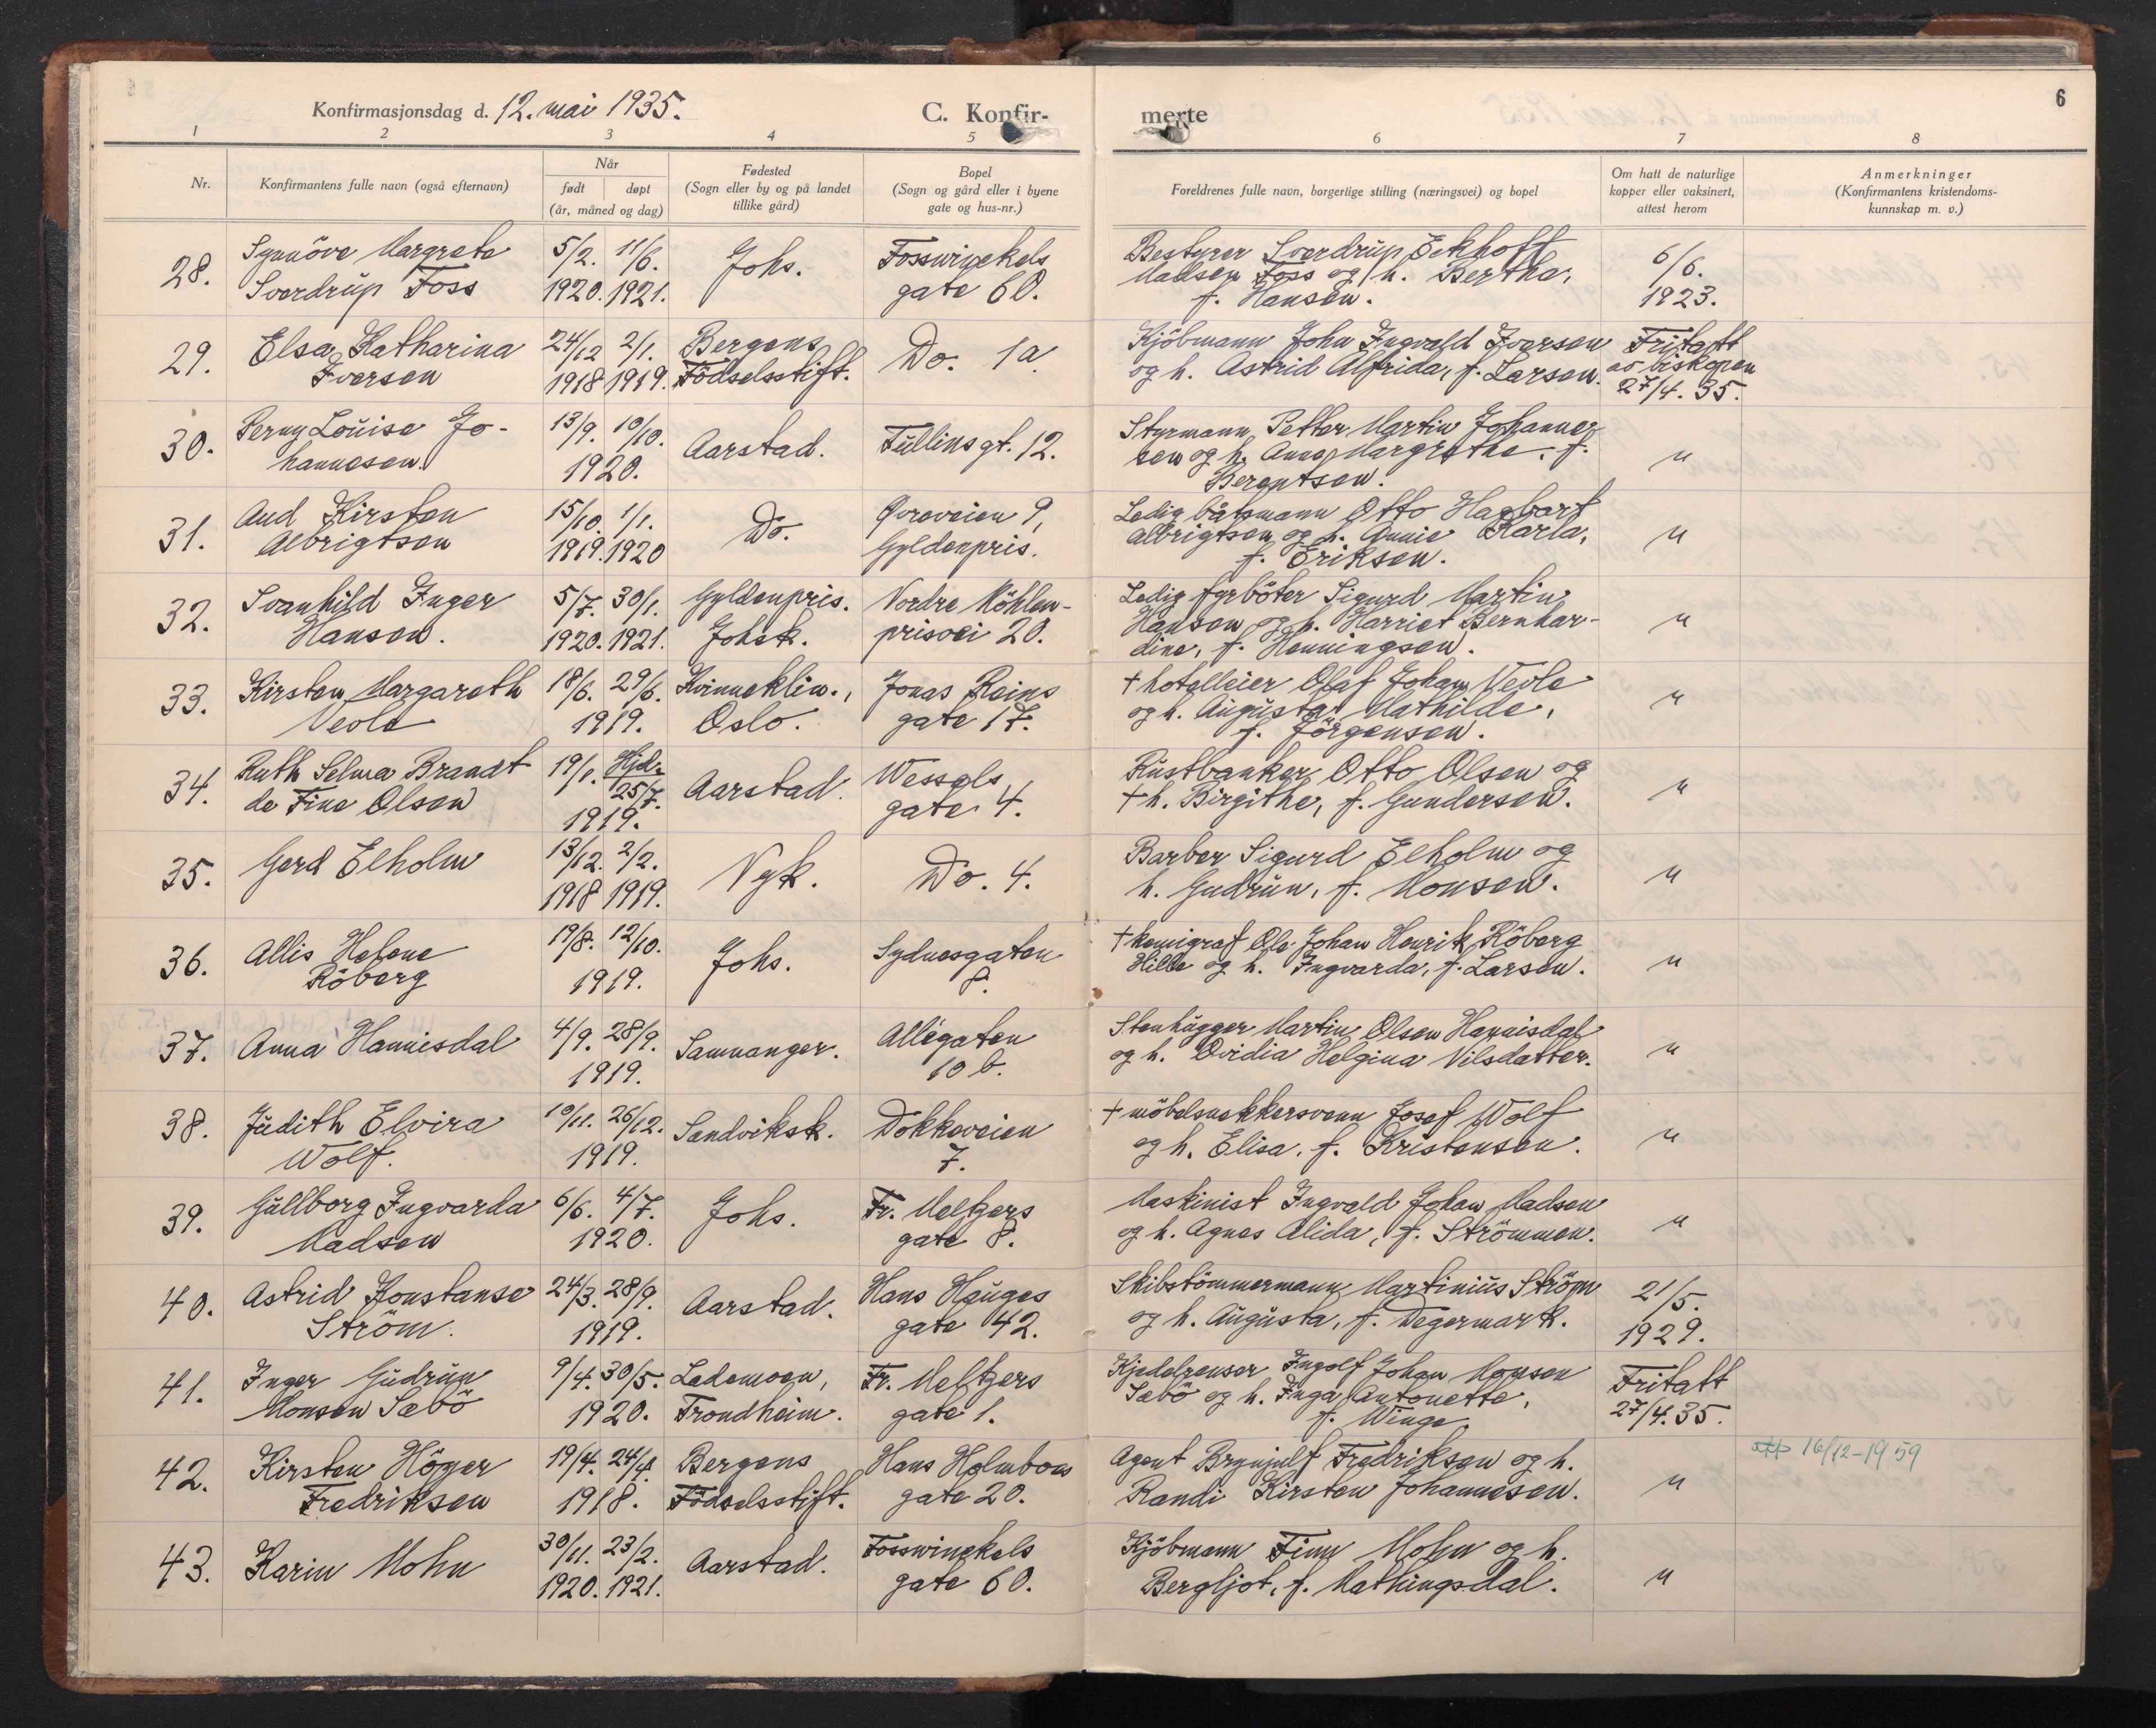 Konfirmasjonsdag d. 12. mai 1935. C. Konfir- merte 6
1 2 3 4 5 6 7 8
Nr. Konfirmantens fulle navn (også efternavn) Når født døpt (år, måned og dag) Fødested (Sogn eller by og på landet tillike gård) Bopel (Sogn og gård eller i byene gate og hus-nr.) Foreldrenes fulle navn, borgerlige stilling (næringsvei) og bopel Om hatt de naturlige kopper eller vaksinert, attest herom Anmerkninger (Konfirmantens kristendoms- kunnskap m. v.)
28. Synnöve Margrete 5/2. 11/6. Johs. Fosswinckels Bestyrer Sverdrup Eckhoff 6/6.
Sverdrup Foss 1920. 1921. gate 60. Madsen Foss og h. Bertha, 1923.
f. Hansen.
29. Elsa Katharina 24/12 2/1. Bergens Do. 1a. Kjöbmann John Ingvald Iversen Fritatt
Iversen 1918 1919. Födselsstift. og h. Astrid Alfrida, f. Larsen. av biskopen
27/4. 35.
30. Perny Louise Jo- 13/9. 10/10. Aarstad. Tullinsgt. 12. Styrmann Petter Martin Johannes-
hannesen. 1920. sen og h. Anna Margrethe, f. "
Berentsen.
31. Aud Kirsten 15/10. 1/1. Do. 9, Ledig båtsmann Otto Hagbart
Albrigtsen 1919. 1920 Gyldenpris. Albrigtsen og h. Annie Karla, "
f. Eriksen.
32. Svanhild Inger 5/7. 30/1. Gyldenpris. Nordre Möhlen- Ledig fyrböter Sigurd Martin
Hansen. 1920. 1921. Johsk. prisvei 20. Hansen og h. Harriet Bernhar- "
dine, f. Henningsen.
33. Kirsten Margareth 18/6. 29/6. Kvinneklin., Jonas Reins † hotelleier Olaf Johan Veole
Veole 1919. Oslo. gate 17. og h. Augusta Mathilde, "
f. Jörgensen.
34. Ruth Selma Brandt 19/1. Hjd. 25/7. Aarstad. Wessels Rustbanker Otto Olsen og
de Fine Olsen 1919. gate 4. † h. Birgithe, f. Gundersen. "
35. Gerd Elholm 13/12. 2/2. Nyk. Do. 4. Barber Sigurd Elholm og
1918 1919. h. Gudrun, f. Monsen. "
36. Allis Helene 19/8. 12/10. Johs. Sydnesgaten † kemigraf Ole Johan Henrik Röberg
Röberg 1919. 8. Hille og h. Ingvarda, f. Larsen. "
37. Anna Hannisdal 4/9. 28/9. Samnanger. Allégaten Stenhugger Martin Olsen Hannisdal
1919. 10 b. og h. Ovidia Helgina Nilsdatter. "
38. Judith Elvira 10/11. 26/12. Sandviksk. Dokkeveien † möbelsnekkersvenn Josef Wolf
Wolf. 1919. 7. og h. Elisa, f. Kristensen. "
39. Gullborg Ingvarda 6/6. 4/7. Johs. Fr. Meltzers Maskinist Ingvald Johan Madsen
Madsen 1920. gate 8. og h. Agnes Alida, f. Strömmen. "
40. Astrid Konstanse 24/3. 28/9. Aarstad. Hans Hauges Skibstömmermann Martinius Ström 21/5.
Ström. 1919. gate 42. og h. Augusta, f. Degermark. 1929.
41. Inger Gudrun 9/4. 30/5. Lademoen, Fr. Meltzers Kjedelrenser Ingolf Johan Monsen Fritatt
Monsen Sæbö 1920. Trondheim. gate 1. Sæbö og h. Inga Antonette, 27/4. 35.
f. Winge.
42. Kirsten Höyer 19/4. 24/4. Bergens Hans Holmboes Agent Brynjulf Fredriksen og h. 16/12-1959
Fredriksen 1918. Födselsstift. gate 20. Randi Kirsten Johannesen. "
43. Karin Mohn 30/11. 23/2. Aarstad. Fosswinckels Kjöbmann Finn Mohn og h.
1920. 1921. gate 60. Bergljot, f. Mathingsdal. "